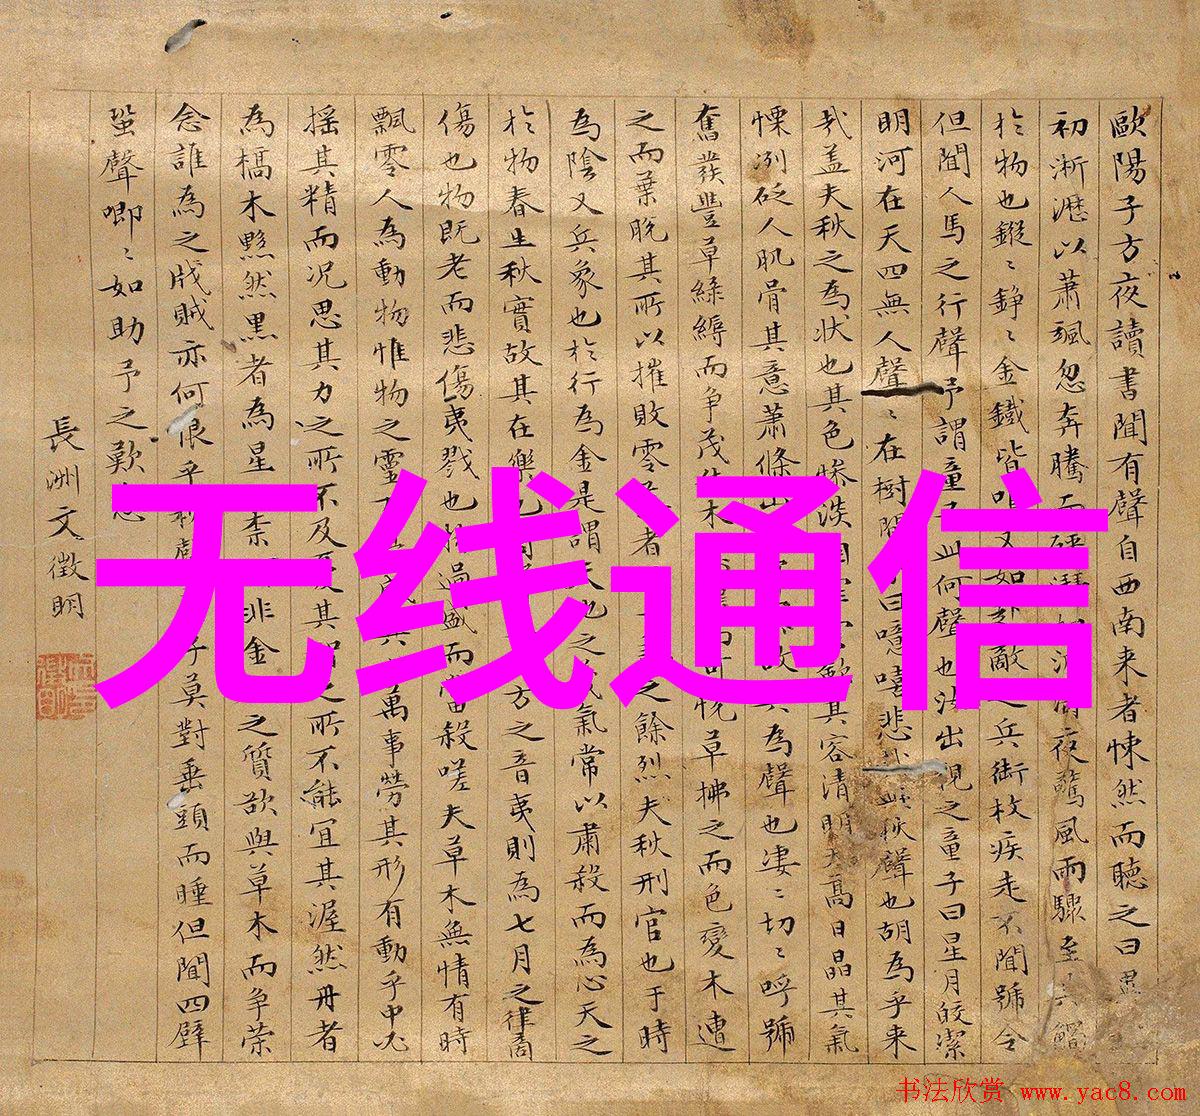 歐陽子方夜讀書聞有聲自西南来者悚然而聽之曰異
初淅瀝以蕭颯忽奔騰而砰湃如濤夜驚風雨驟至其觸
於物也鏦〻錚〻金鐵皆鳴又如赴敵之兵銜枚疾走不聞號令
但聞人馬之行聲予謂童子此何聲也汝出視之童子曰星月皎潔
明河在天四無人聲〻在樹間予曰噫嘻悲此秋聲也胡為乎来
哉盖夫秋之為状也其色慘淡其容清明天高日晶其氣
慄冽砭人肌骨其意蕭條山其為聲也凄〻切〻呼號
奮發豐草綠縟而争茂佳木可悅草拂之而色變木遭
之而葉脫其所以摧敗零落者之餘烈夫秋刑官也于時
為陰又兵象也於行為金是謂天地之義氣常以肅殺而為心天之
於物春生秋實故其在樂也商方之音夷則為七月之律商
傷也物既老而悲傷夷戮也物過盛而當殺嗟夫草木無情有時
飄零人為動物惟物之靈萬事勞其形有動乎中必
揺其精而况思其力之所不及憂其智之所不能宜其渥然丹者
為槁木黟然黒者為星奈非金之質欲與草木而争榮
念誰為之戕賊亦何恨乎秋聲子莫對垂頭而睡但聞四壁
蛩聲唧〻如助予之歎息
長洲文徴明
无线通信
书法欣赏 www.yac8.com